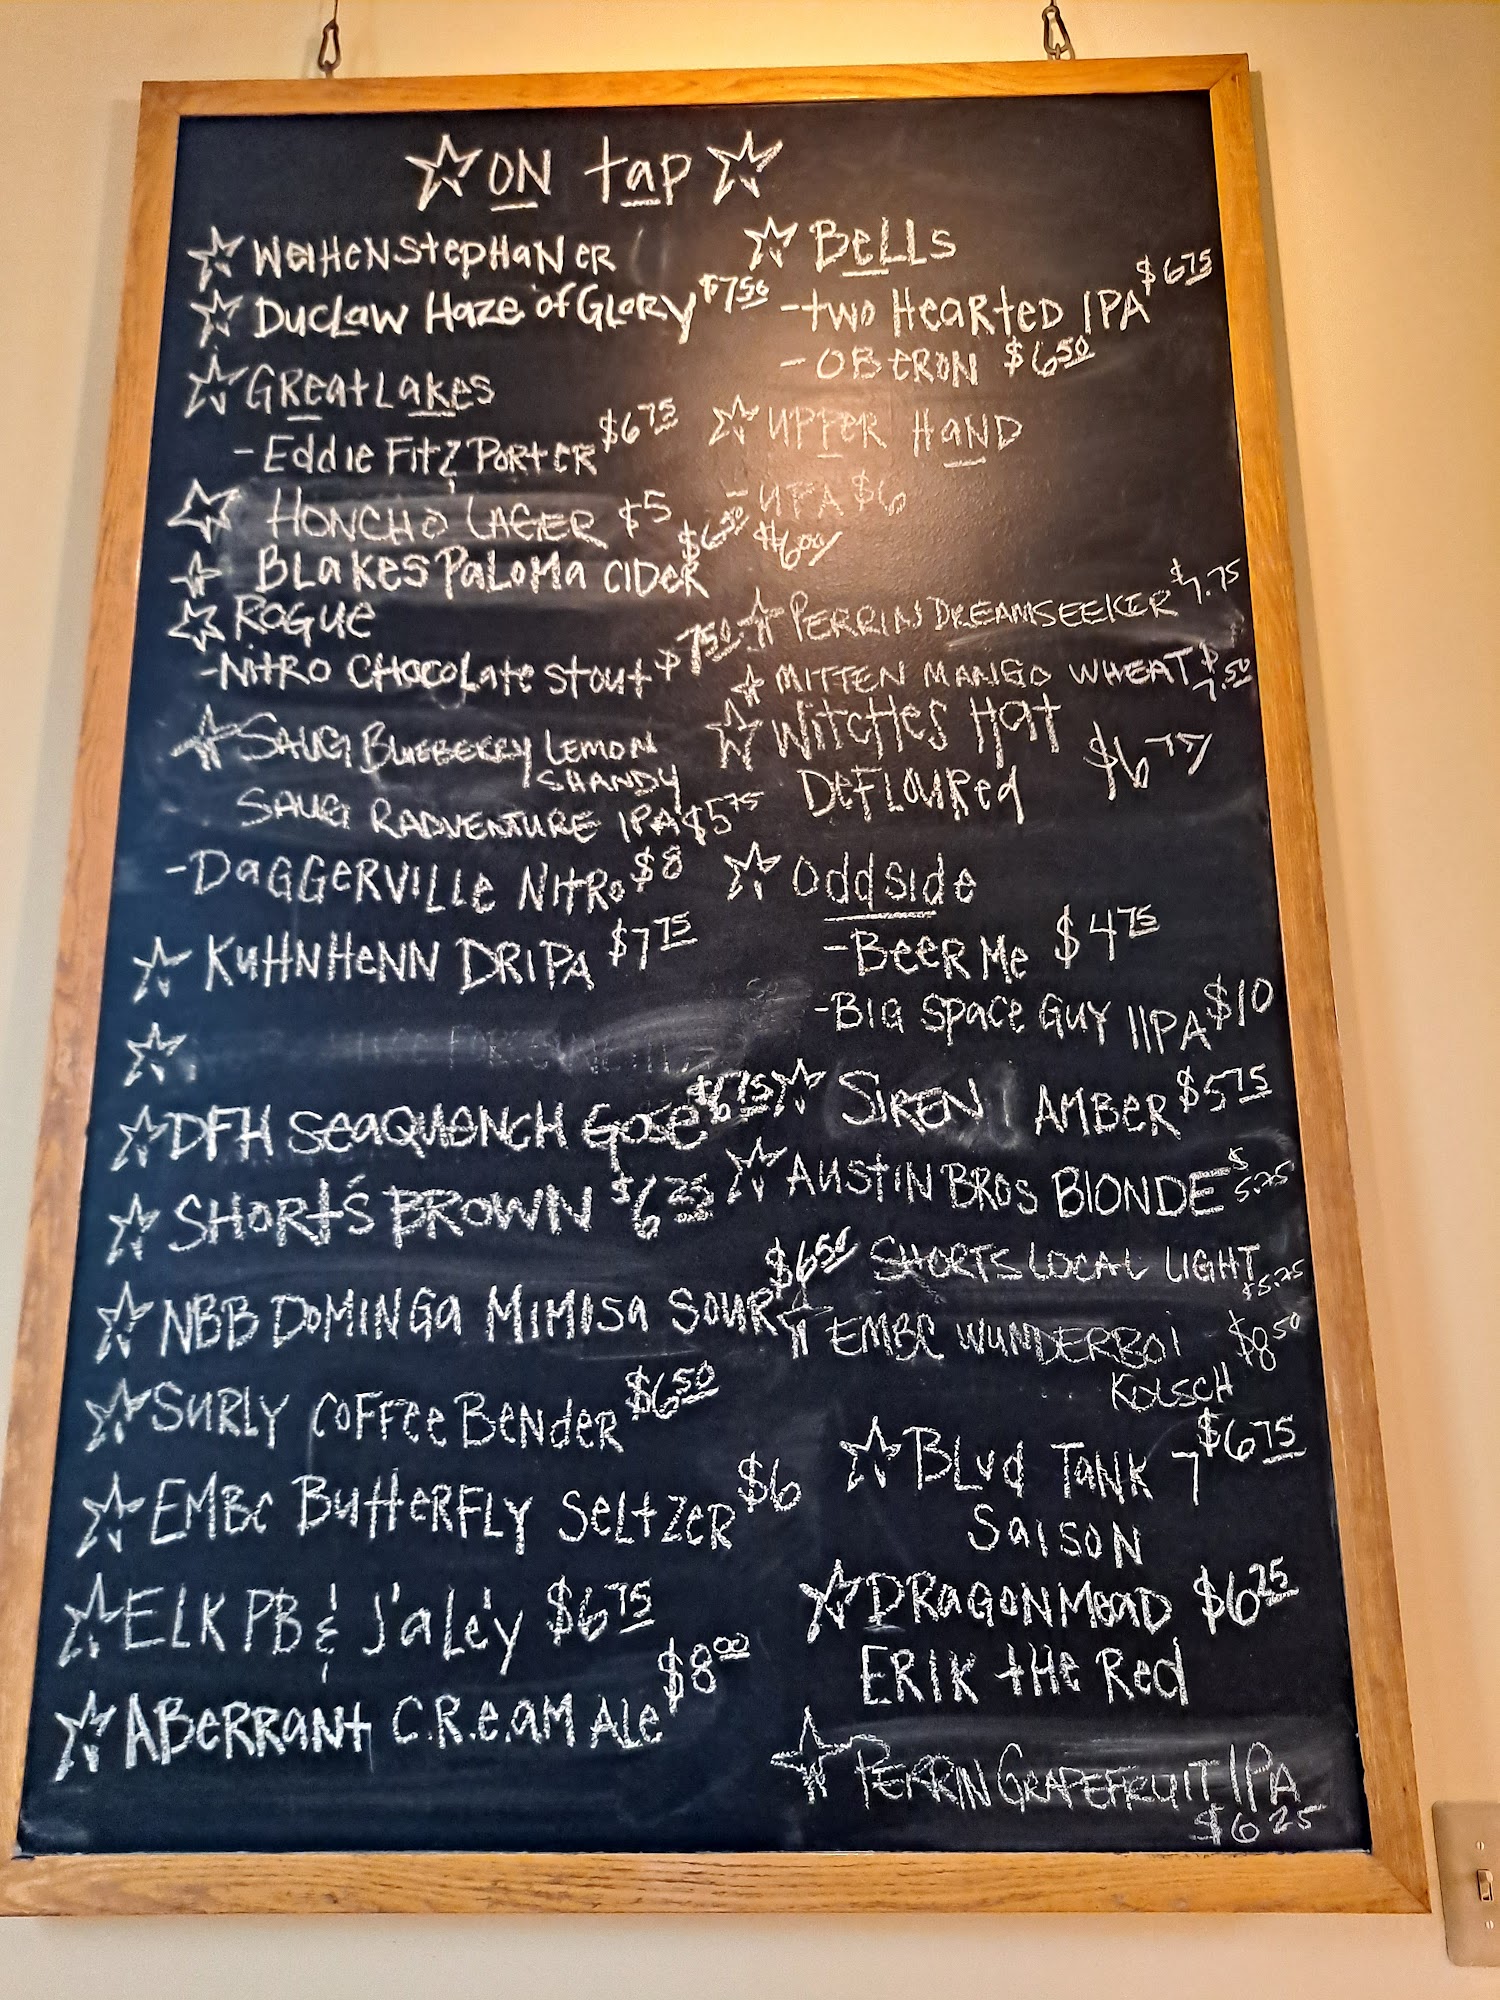 ON tap
WeiHeNStepHaNer
DucLaw Haze of Glory $7.50
GReat Lakes
- Eddie Fitz Porter $6.75
HONCHO LAGER $5
BLaKes PaLoMa CIDER $6.50
ROGUE
- Nitro Chocolate Stout $7.50
SAUG BLUEBERRY LEMON
SHANDY
SAUG RADVENTURE IPA $5.75
- DaGGeRVILLe NITRo $8
KuHNHeNN DRIPA $7.75
DFH SeaQUeNCH Gose $6.75
SHORt'S BROWN $6.25
NBB DOMINGa MIMOSa SOUR $6.50
SURLY COFFee BeNDeR $6.50
EMBC ButteRFLY SeLtZeR $6
ELK PB & J'aLe'y $6.75
ABeRRANt C.R.e.aM ALe $8.00
BeLLs
- two HeaRteD IPA $6.75
- OBeRON $6.50
UPPER HaND
- UPA $6
$6.00/
PERRIN DREAMSEEKER $7.75
MITTEN MANGO WHEAT $7.50
WitCHes Hat
DeFLOURed $6.75/
Oddside
- BeeR Me $4.75
- BIG Space GUY IIPA $10
SIREN AMBER $5.75
AUStIN BROS BLONDE $5.75
SHORTS LOCAL LIGHT
$5.25
EMBC WUNDERBOI $8.50
KOLSCH
BLVd TANK 7 $6.75
SaISON
DRaGONMeaD $6.25
ERIK tHe Red
PERRIN GRAPEFRUIT IPA
$6.25